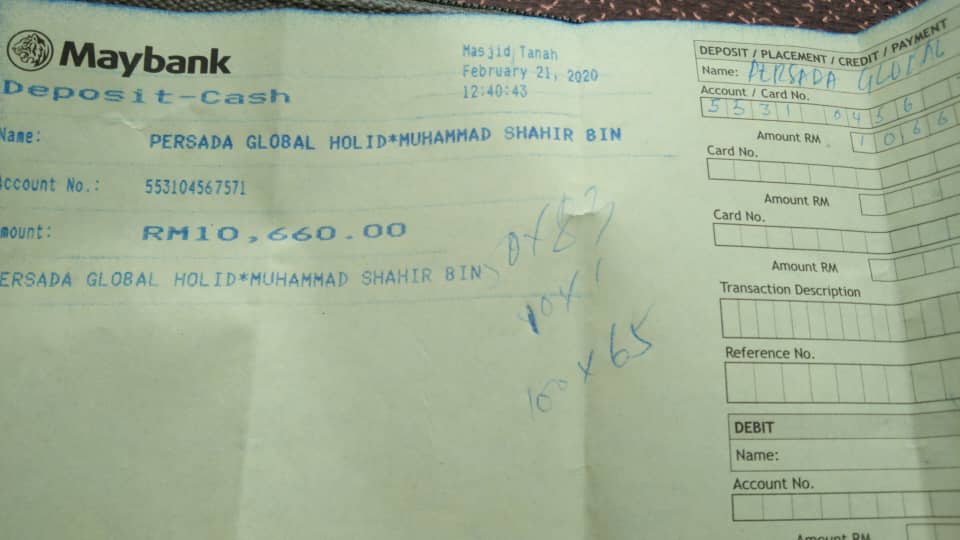 Maybank
Masjid Tanah
February 21, 2020
12:40:43
Deposit-Cash
Name: PERSADA GLOBAL HOLID*MUHAMMAD SHAHIR BIN
ccount No.: 553104567571
mount: RM10,660.00
ERSADA GLOBAL HOLID*MUHAMMAD SHAHIR BIN
10x1
100x65
DEPOSIT / PLACEMENT / CREDIT / PAYMENT
Name: PERSADA GLOBAL
Account / Card No.
5531 0456
Amount RM 1066
Card No.
Amount RM
Card No.
Amount RM
Transaction Description
Reference No.
DEBIT
Name:
Account No.
Amount RM